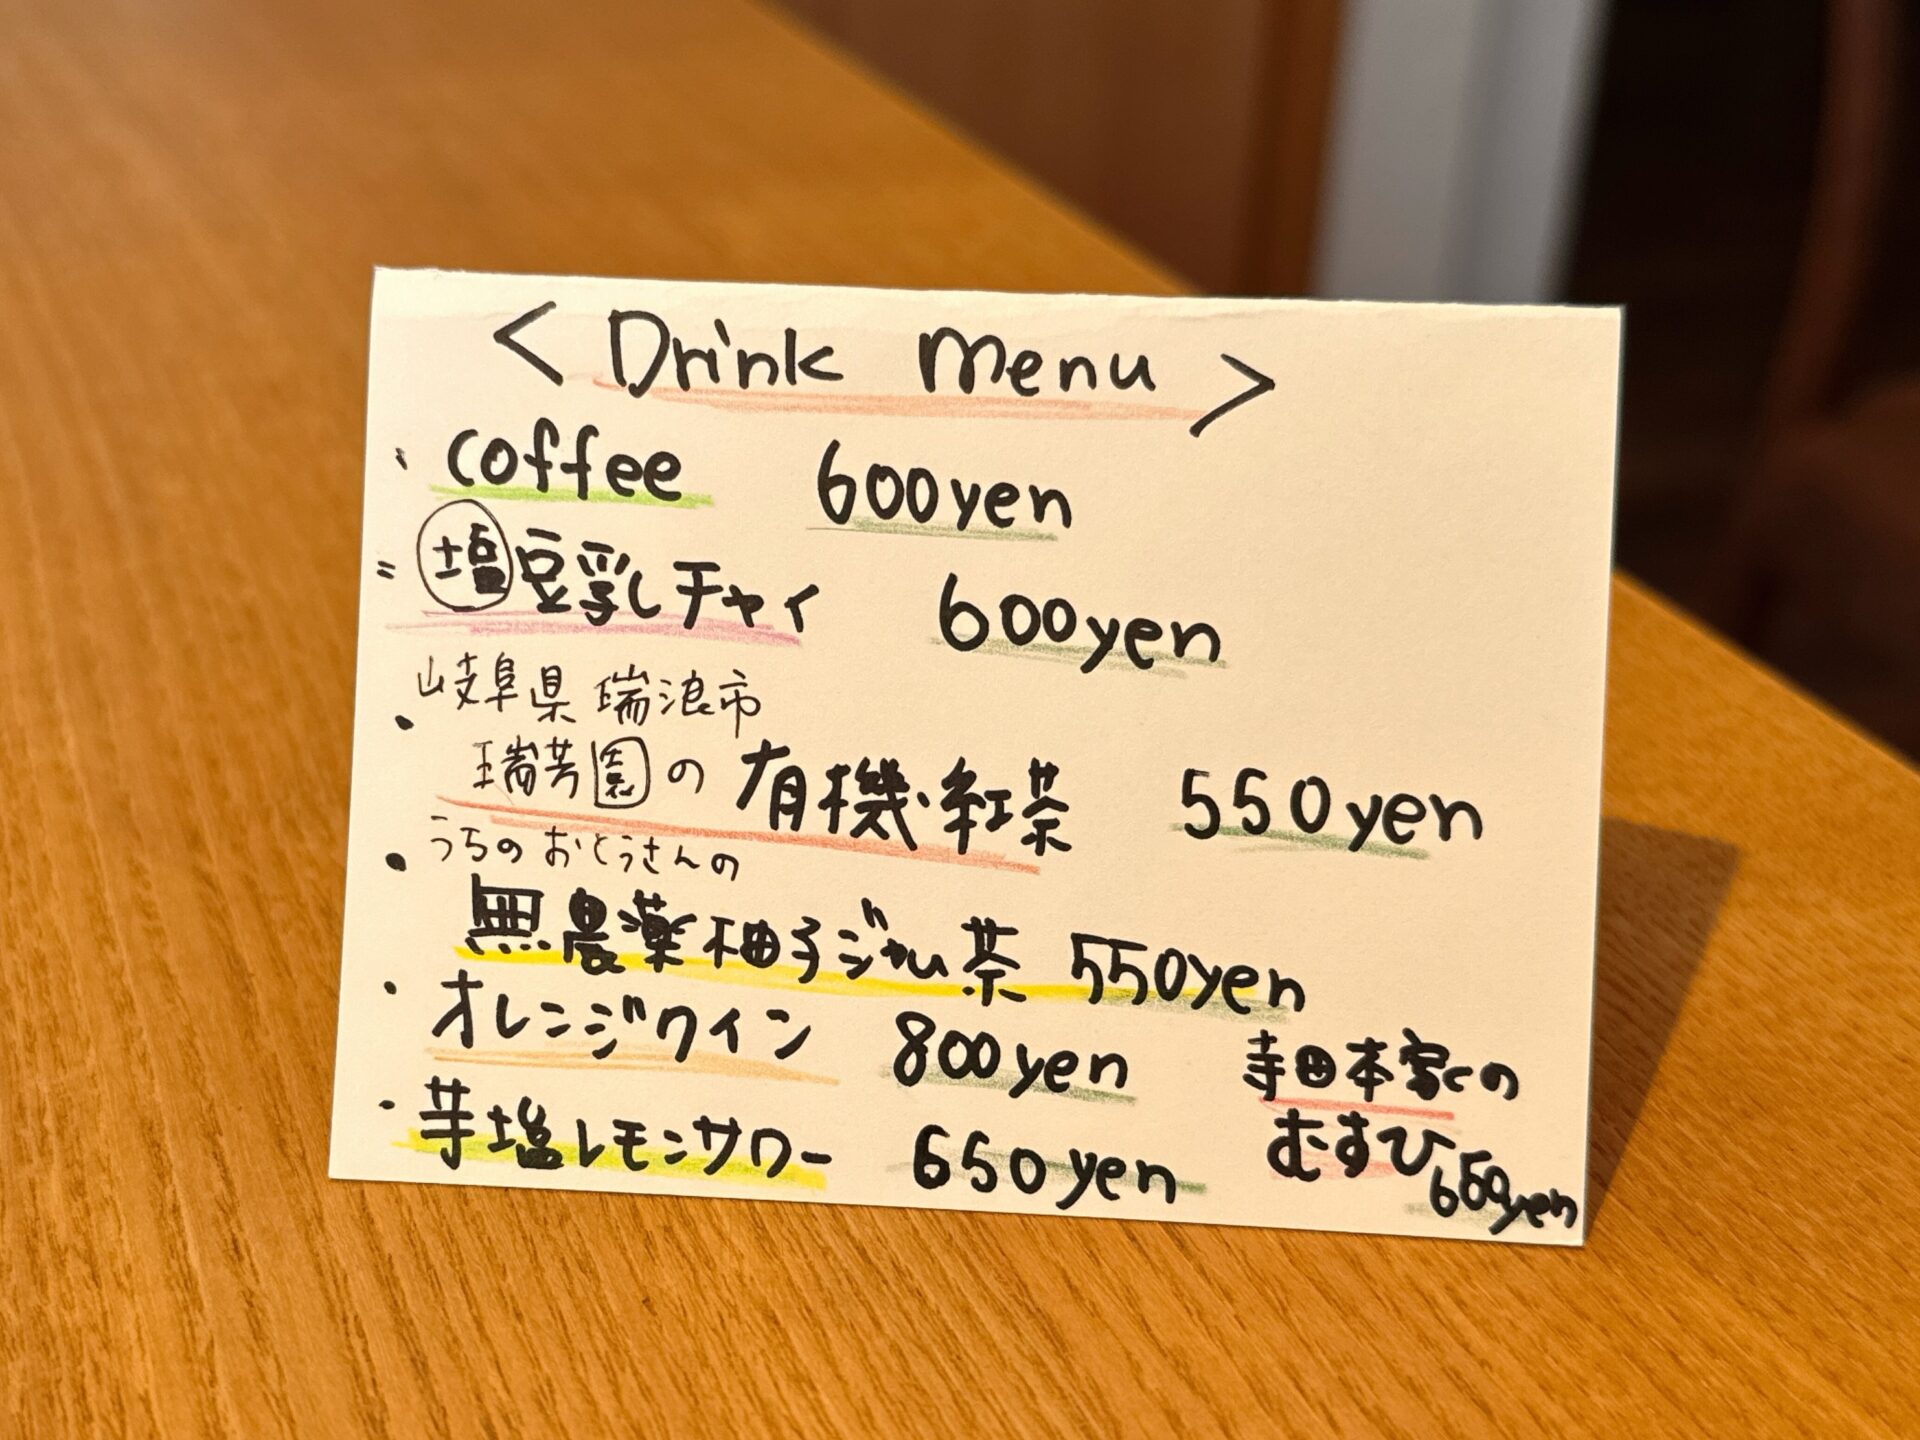 < Drink Menu >
・ coffee 600yen
= 塩豆乳チャイ 600yen
岐阜県 瑞浪市
・ 瑞芳園の 有機紅茶 550yen
・ うちのおとうさんの
無農薬柚子ジャム茶 550yen
・ オレンジワイン 800yen
・ 芋塩レモンサワー 650yen
寺田本家の
むすひ 650yen